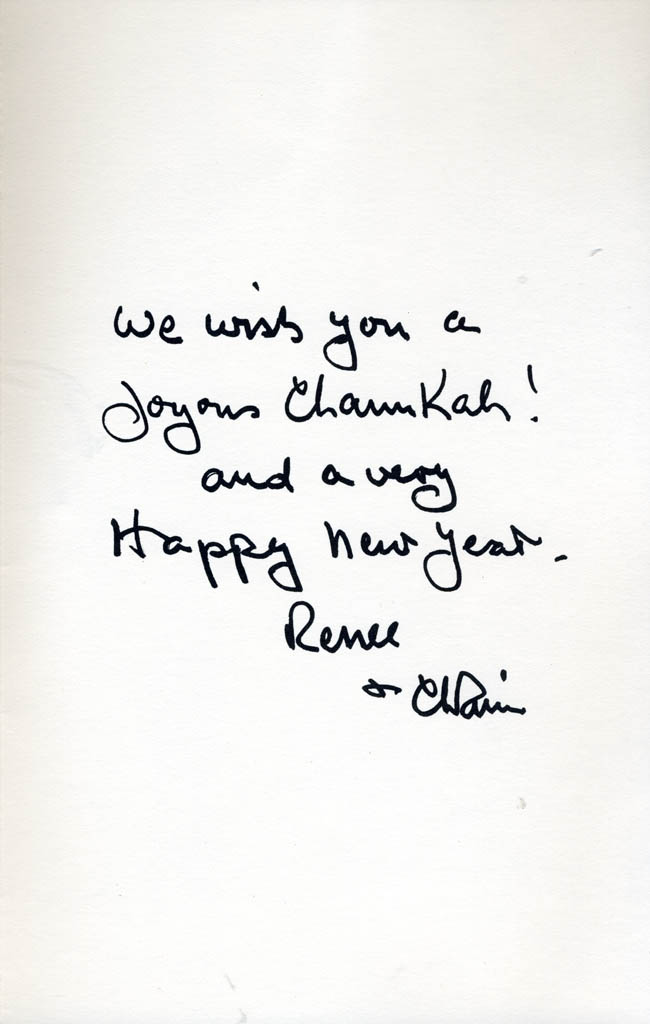 We wish you a
Joyous Chanukah!
and a very
Happy New Year.
Renee
+ Chaim